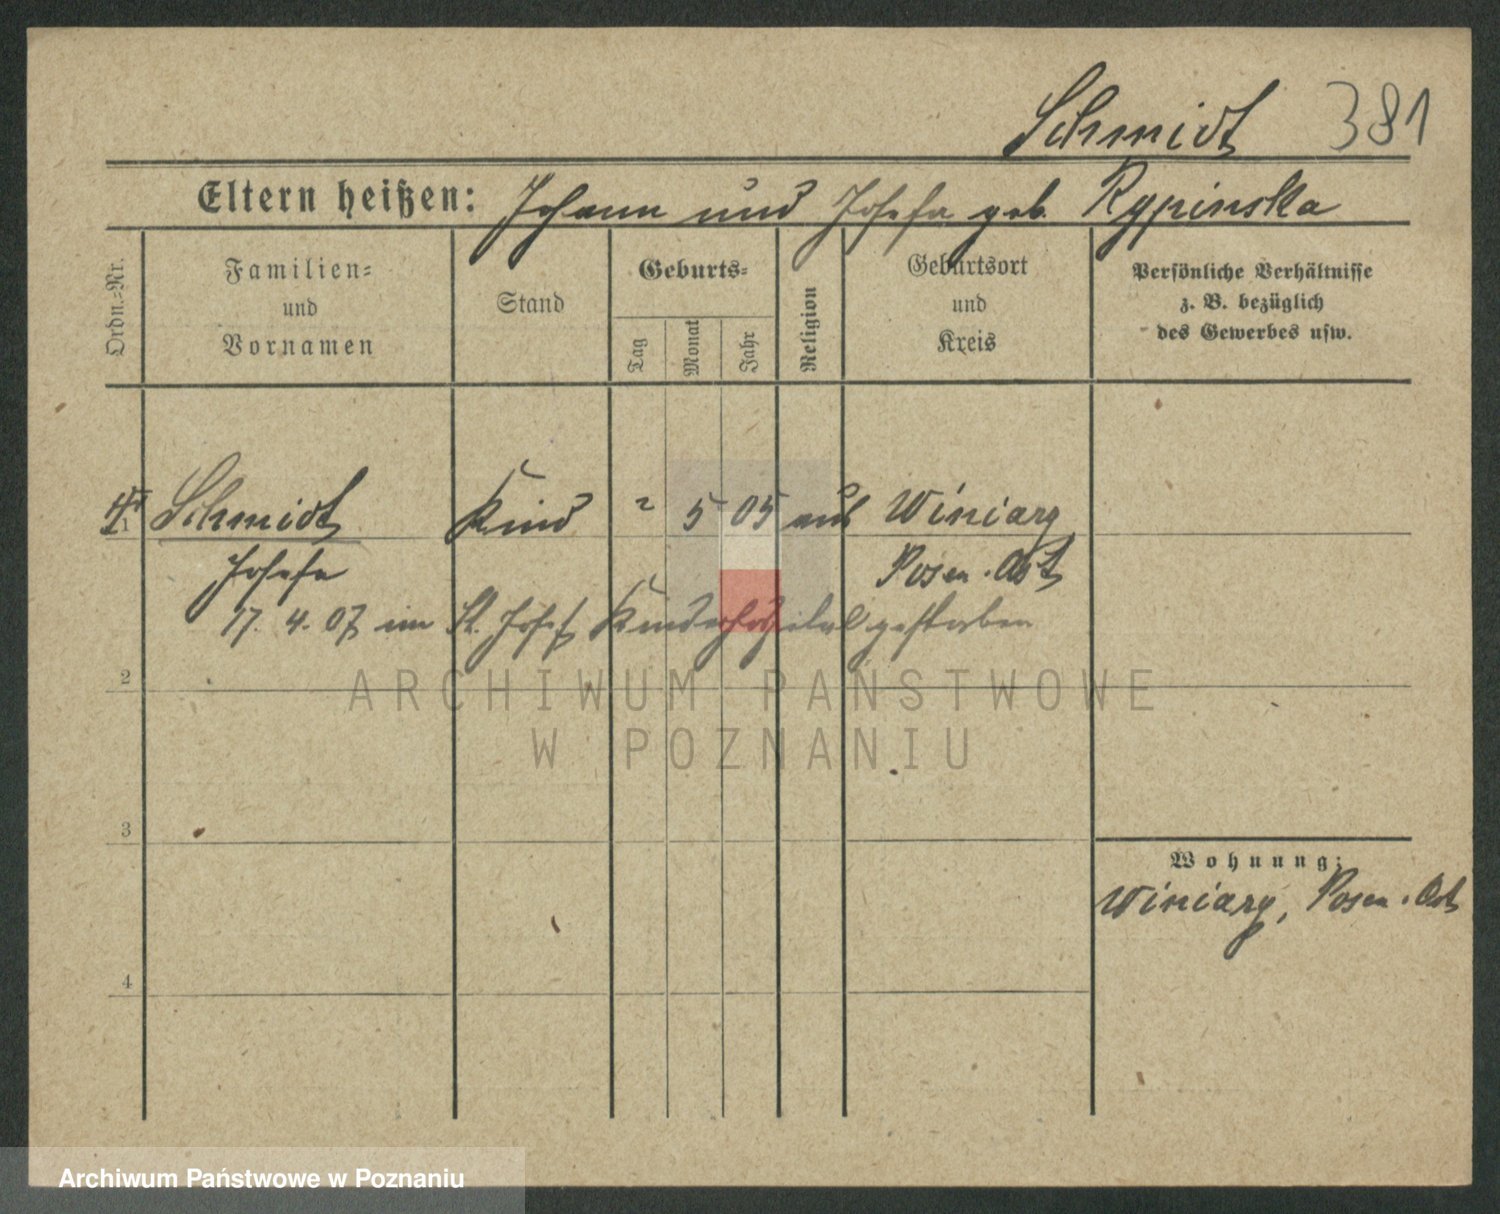 Schmidt 381
Eltern heißen: Johann und Josefa geb. Rypinska
Ordn.-Nr.
Familien-
und
Vornamen
Stand
Geburts-
Tag
Monat
Jahr
Religion
Geburtsort
und
Kreis
Persönliche Verhältnisse
z. B. bezüglich
des Gewerbes usw.
1 Schmidt Kind 5 05 Winiary
Josefa Posen. Ost
17. 4. 07 im St. Josef Kinderhospital gestorben
2
ARCHIWUM PAŃSTWOWE
W POZNANIU
3
Wohnung:
Winiary, Posen. Ost
4
Archiwum Państwowe w Poznaniu